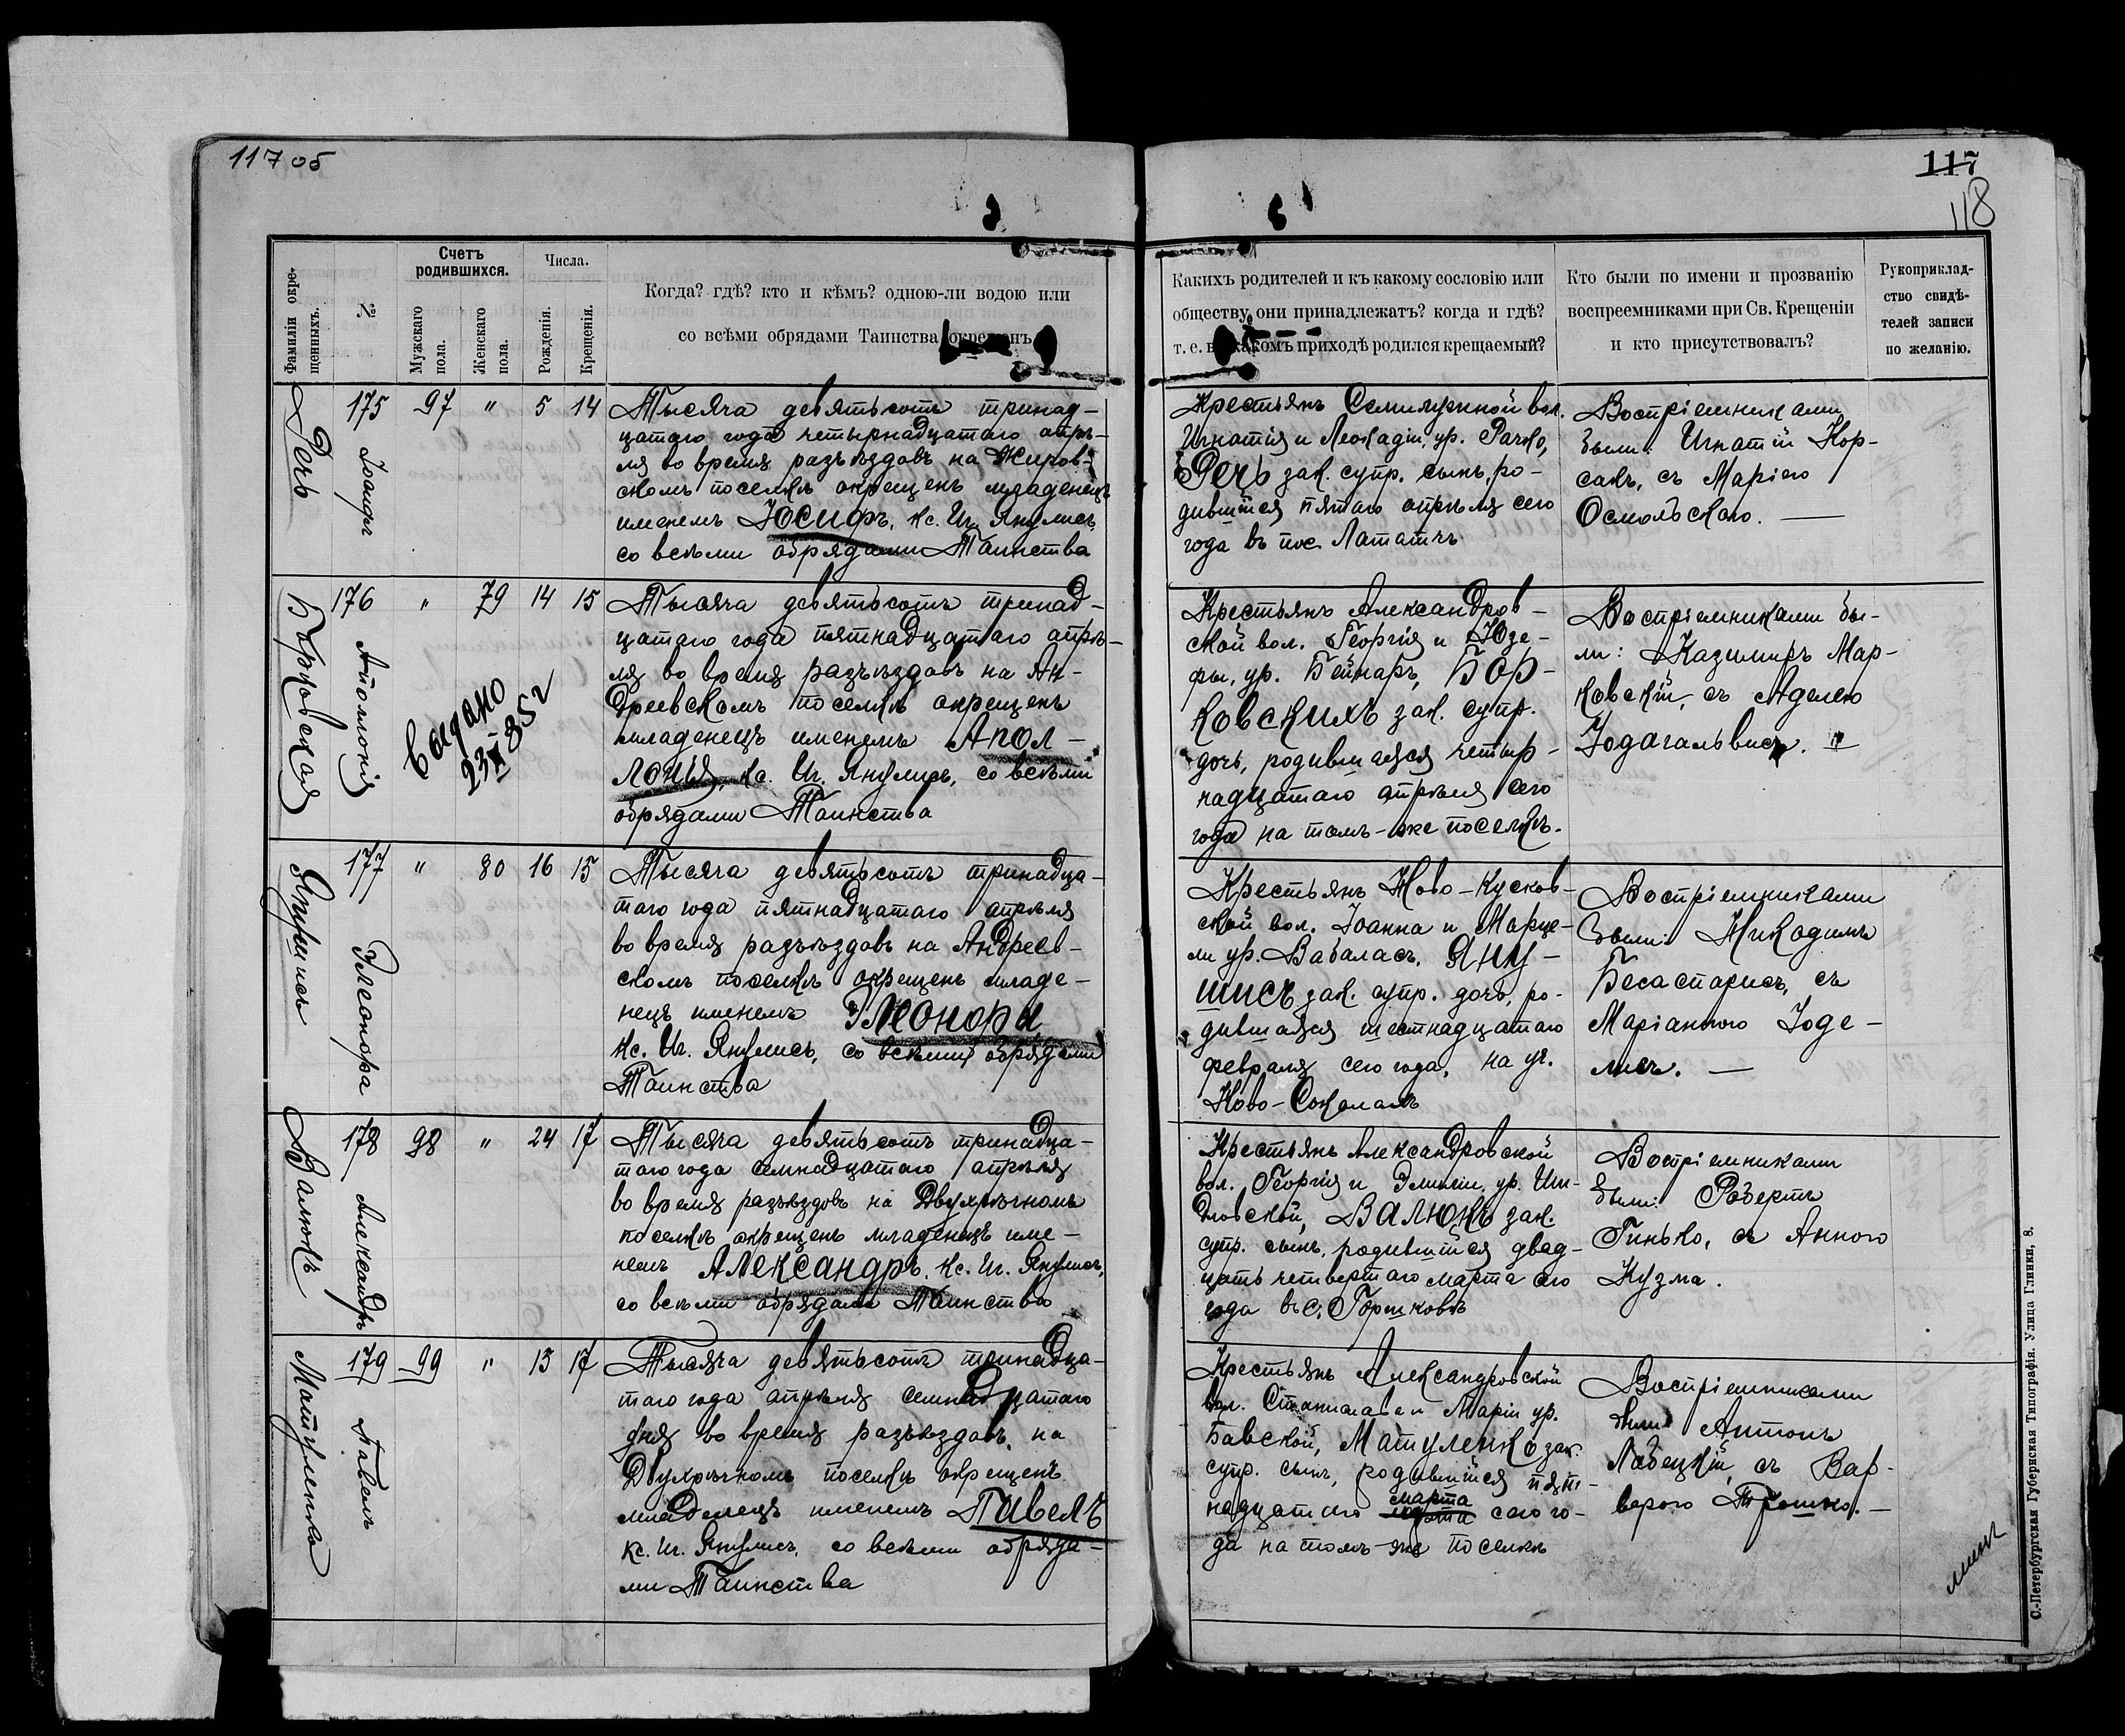 117 об
117
118
Фамиліи окрещенныхъ.
№
Счетъ родившихся.
Мужскаго пола.
Женскаго пола.
Числа.
Рожденія.
Крещенія.
Когда? гдѣ? кто и кѣмъ? одною-ли водою или
со всѣми обрядами Таинства окрещенъ
Какихъ родителей и къ какому сословію или
обществу они принадлежатъ? когда и гдѣ?
т. е. въ какомъ приходѣ родился крещаемый?
Кто были по имени и прозванію
воспреемниками при Св. Крещеніи
и кто присутствовалъ?
Рукоприклад-
ство свидѣ-
телей записи
по желанію.
Речь
175
Іосифъ
97 " 5 14
Тысяча девятьсотъ тринад-
цатаго года четырнадцатаго апрѣ-
ля во время разъѣздовъ на Жиров-
скомъ поселкѣ окрещенъ младенецъ
именемъ Іосифъ, кс. Иг. Янулисъ,
со всѣми обрядами Таинства
Крестьянъ Семилужной вол.
Игнатія и Леокадіи, ур. Рачко,
Речь зак. супр. сынъ, ро-
дившійся пятаго апрѣля сего
года въ пос. Лататчъ
Воспріемниками
были: Игнатій Кор-
сакъ, съ Маріею
Осмольскою.
Борковская
176
Аполлонія
" 79 14 15
Выдано
23 XI 85 г
Тысяча девятьсотъ тринад-
цатаго года пятнадцатаго апрѣ-
ля во время разъѣздовъ на Ан-
дреевскомъ поселкѣ окрещенъ
младенецъ именемъ Апол-
лонія, кс. Иг. Янулисъ, со всѣми
обрядами Таинства
Крестьянъ Александров-
ской вол. Георгія и Юзе-
фы, ур. Бейнаръ, Бор-
ковскихъ зак. супр.
дочь, родившаяся четыр-
надцатаго апрѣля сего
года на томъ-же поселкѣ.
Воспріемниками бы-
ли: Казимиръ Мар-
ковскій, съ Аделею
Іодагальвисъ.
Янушисъ
177
Элеонора
" 80 16 15
Тысяча девятьсотъ тринадца-
таго года пятнадцатаго апрѣля
во время разъѣздовъ на Андреев-
скомъ поселкѣ окрещенъ младе-
нецъ именемъ Элеонора
кс. Иг. Янулисъ, со всѣми обрядами
Таинства
Крестьянъ Ново-Кусков-
ской вол. Іоанна и Марце-
ли ур. Вабаласъ, Яну-
шисъ зак. супр. дочь, ро-
дившаяся шестнадцатаго
февраля сего года, на уч.
Ново-Соколахъ
Воспріемниками
были: Никодимъ
Бесаспарисъ, съ
Маріанною Іоде-
лисъ.
Валюкъ
178
Александръ
98 " 24 17
Тысяча девятьсотъ тринадца-
таго года семнадцатаго апрѣля
во время разъѣздовъ на Двухрѣчномъ
поселкѣ окрещенъ младенецъ име-
немъ Александръ, кс. Иг. Янулисъ,
со всѣми обрядами Таинства
Крестьянъ Александровской
вол. Георгія и Эмиліи, ур. Ши-
дловской, Валюкъ зак.
супр. сынъ, родившійся двад-
цать четвертаго марта сего
года въ с. Горшковѣ
Воспріемниками
были: Робертъ
Гинько, съ Анною
Кузма.
Матуленко
179
Павелъ
99 " 15 17
Тысяча девятьсотъ тринадца-
таго года апрѣля семнадцатаго
дня во время разъѣздовъ, на
Двухрѣчномъ поселкѣ окрещенъ
младенецъ именемъ Павелъ
кс. Иг. Янулисъ, со всѣми обряда-
ми Таинства
Крестьянъ Александровской
вол. Станислава и Маріи ур.
Бавской, Матуленко зак.
супр. сынъ, родившійся пят-
надцатаго марта сего го-
да на томъ-же поселкѣ
Воспріемниками
были Антонъ
Лабецкій, съ Вар-
варою Трошко.
С.-Петербургская Губернская Типографія. Улица Глинки, 8.